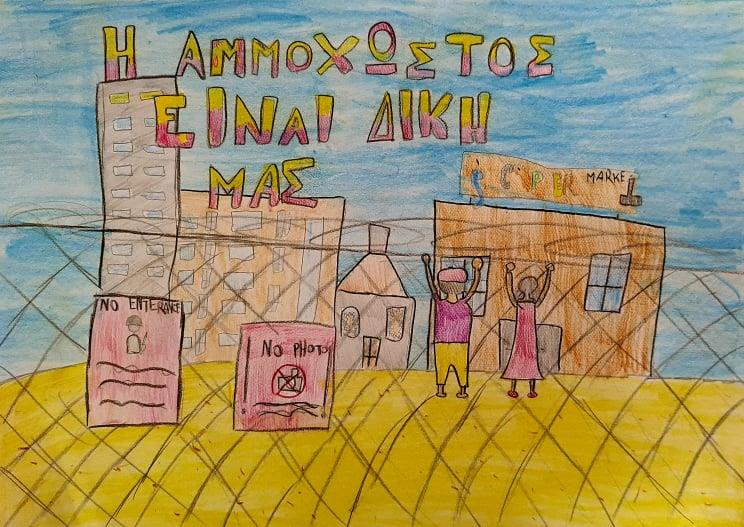 Η ΑΜΜΟΧΩΣΤΟΣ
ΕΙΝΑΙ ΔΙΚΗ
ΜΑΣ
SUPER MARKET
NO ENTERANCE
NO PHOTO